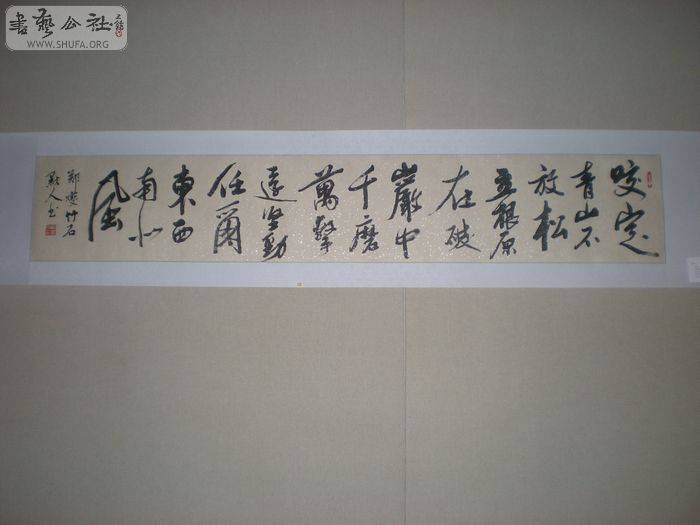 書藝公社
WWW.SHUFA.ORG
咬定
青山不
放松
立根原
在破
巖中
千磨
萬擊
還坚勁
任爾
東西
南北
風
鄭燮竹石
人书